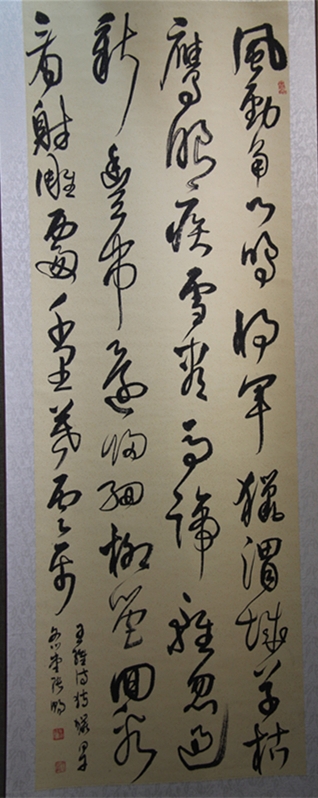 風勁角弓鳴將軍獵渭城草枯
鷹眼疾雪盡馬蹄輕忽過
新豐市還歸細柳營回
看射雕處千里暮雲平
王維詩